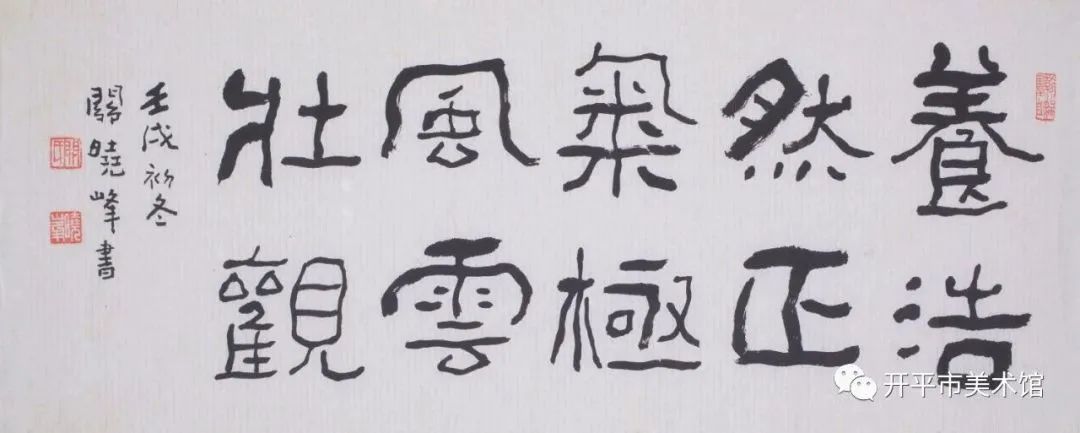 養浩
然正
氣極
風雲
壯觀
壬戌初冬
關曉峰書
开平市美术馆